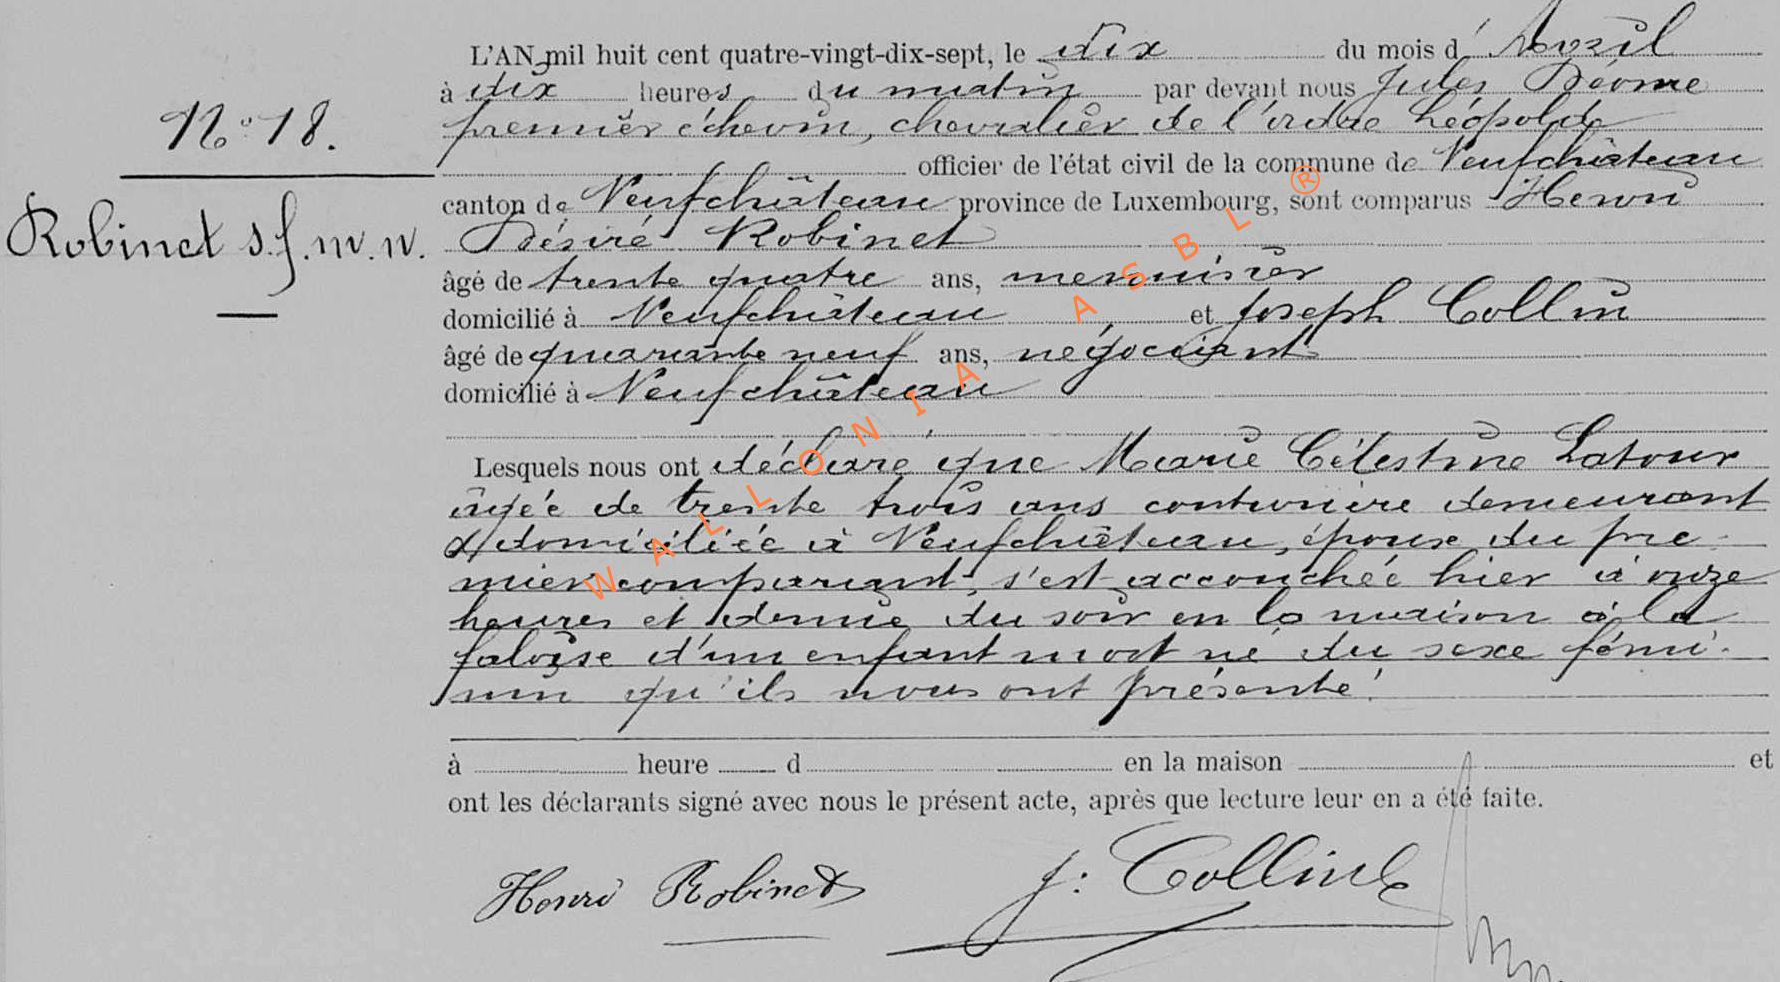 L'AN mil huit cent quatre-vingt-dix-sept, le dix du mois d' Avril
à dix heures du matin par devant nous Jules
N° 18.
premier échevin, chevalier de l'ordre Léopold
officier de l'état civil de la commune de Neufchâteau
canton de Neufchâteau province de Luxembourg, sont comparus Henri
Robinet s.f. m. n.
Désiré Robinet
âgé de trente quatre ans, menuisier
domicilié à Neufchâteau et Joseph Collin
âgé de quarante neuf ans, négociant
domicilié à Neufchâteau
Lesquels nous ont déclaré que Marie Célestine Latour
âgée de trente trois ans couturière demeurant
& domiciliée à Neufchâteau, épouse du pre-
mier comparant, s'est accouchée hier à onze
heures et demie du soir en la maison à la
faloise d'un enfant mort né du sexe fémi-
nin qu'ils nous ont présenté.
à heure d en la maison et
ont les déclarants signé avec nous le présent acte, après que lecture leur en a été faite.
Henri Robinet J: Collin
WALLONIA ASBL ®